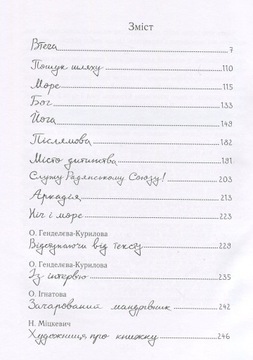 Зміст
Втеча 7
Пошук шляху 110
Море 115
Бог 133
Йога 149
Післямова 182
Місто дитинства 191
Служу Радянському Союзу! 203
Аркадія 213
Ніч і море 223
О. Генделева-Курилова
Відступаючи від тексту 229
О. Генделева-Курилова
Із інтервю 235
О. Ігнатова
Зачарований мандрівник 242
Н. Міцкевич
Художниця про книжку 246